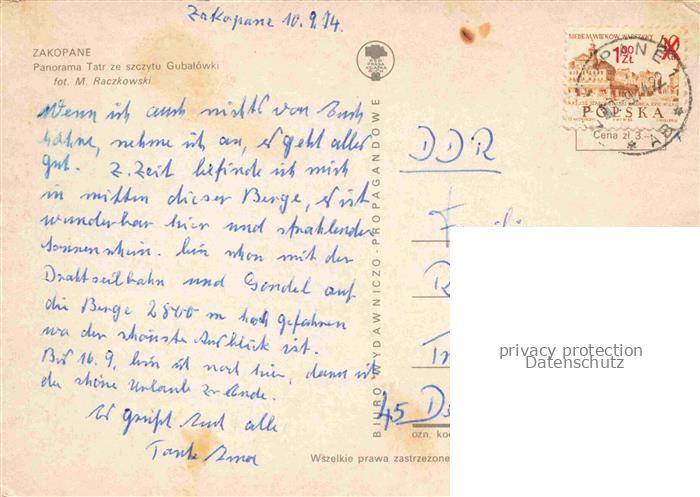 Zakopane 10.9.74.
ZAKOPANE
Panorama Tatr ze szczytu Gubałówki
fot. M. Raczkowski
Wenn ich auch nichts von Euch
höhre, nehme ich an, es geht alles
gut. Z. Zeit befinde ich mich
in mitten dieser Berge, es ist
wunderbar hier und strahlender
Sonnenschein. bin schon mit der
Drahtseilbahn und Gondel auf
die Berge 2800 m hoch gefahren
wo der schönste Ausblick ist.
Bis 16.9. bin ich noch hier, dann ist
der schöne Urlaub zu ende.
Es grüßt Euch alle
Tante
BIURO WYDAWNICZO-PROPAGANDOWE
SIEDEM WIEKÓW WARSZAWY
1,50 ZŁ
POLSKA
Cena zł 3.—
DDR
45
ozn. ko
Wszelkie prawa zastrzeżone
privacy protection
Datenschutz